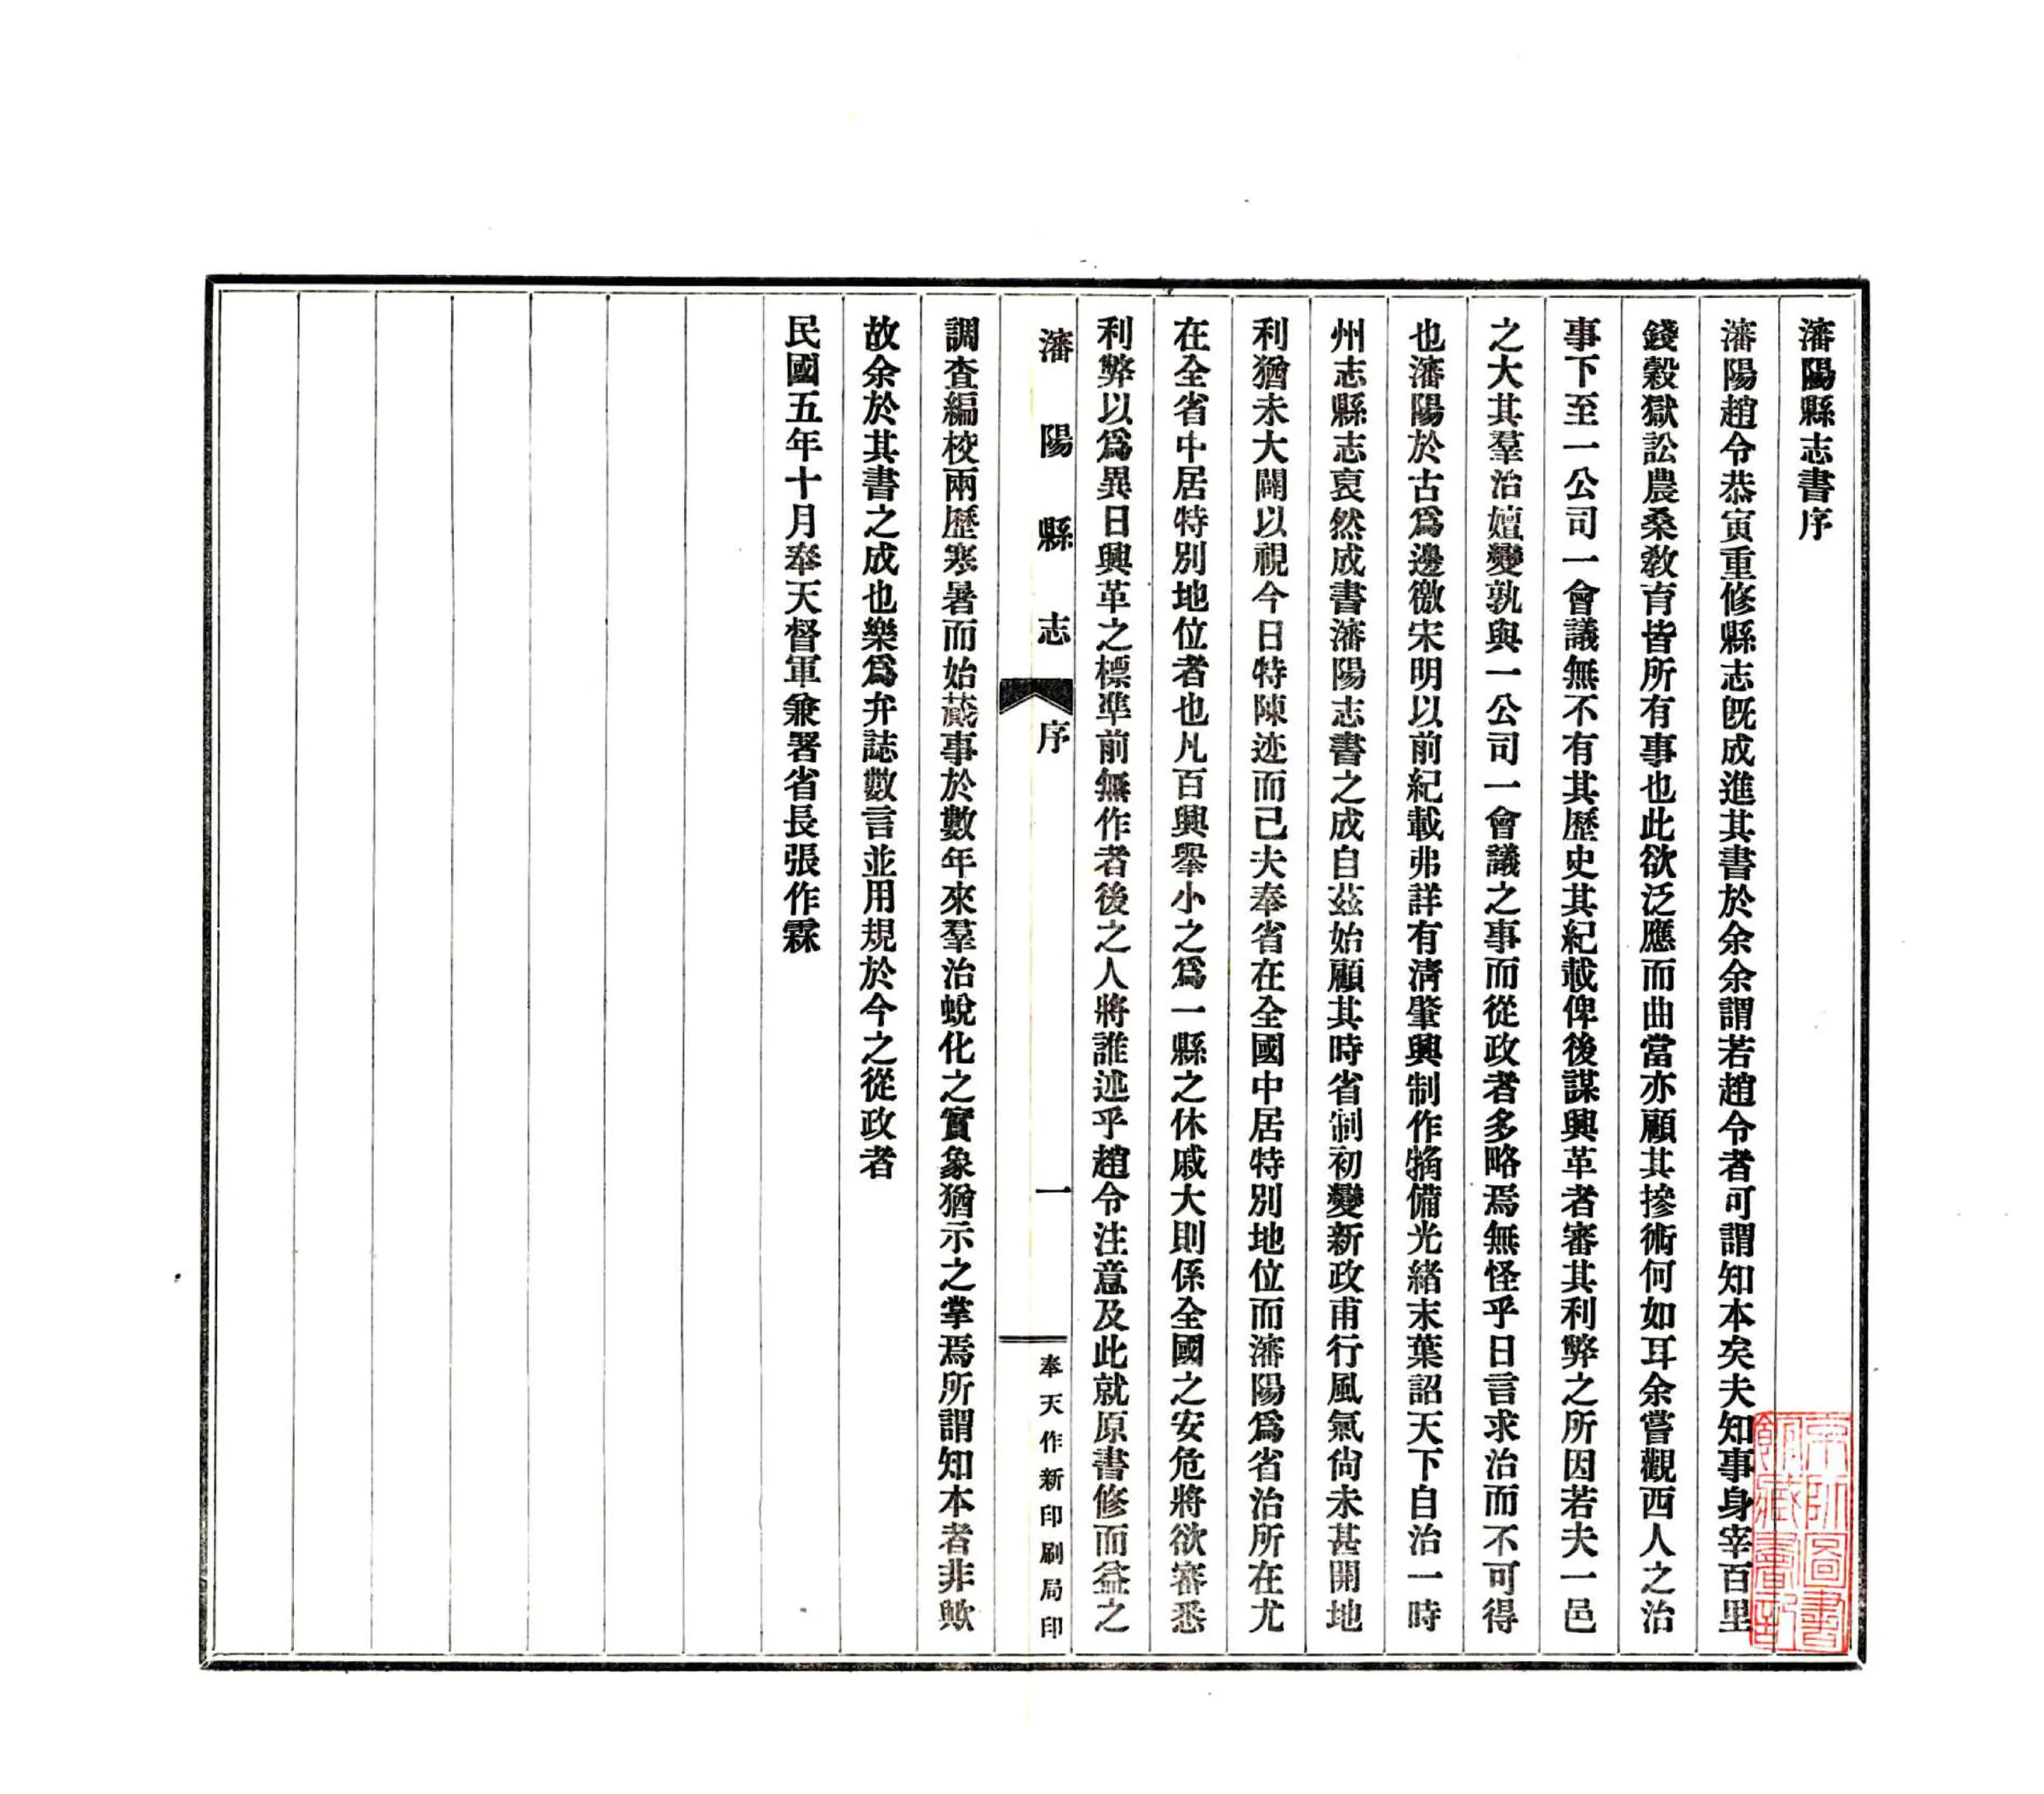 瀋陽縣志書序
瀋陽趙令恭寅重修縣志旣成進其書於余余謂若趙令者可謂知本矣夫知事身宰百里
錢穀獄訟農桑敎育皆所有事也此欲泛應而曲當亦顧其摻術何如耳余嘗觀西人之治
事下至一公司一會議無不有其歷史其紀載俾後謀興革者審其利弊之所因若夫一邑
之大其羣治嬗變孰與一公司一會議之事而從政者多略焉無怪乎日言求治而不可得
也瀋陽於古爲邊徼宋明以前紀載弗詳有淸肇興制作犓備光緖末葉詔天下自治一時
州志縣志裒然成書瀋陽志書之成自茲始顧其時省制初變新政甫行風氣尙未甚開地
利猶未大闢以視今日特陳迹而已夫奉省在全國中居特別地位而瀋陽爲省治所在尤
在全省中居特別地位者也凡百興舉小之爲一縣之休戚大則係全國之安危將欲審悉
利弊以爲異日興革之標準前無作者後之人將誰述乎趙令注意及此就原書修而益之
瀋陽縣志 序 一 奉天作新印刷局印
調査編校兩歷寒暑而始蕆事於數年來羣治蛻化之實象猶示之掌焉所謂知本者非歟
故余於其書之成也樂爲弁誌數言並用規於今之從政者
民國五年十月奉天督軍兼署省長張作霖
京師圖書
館藏書記